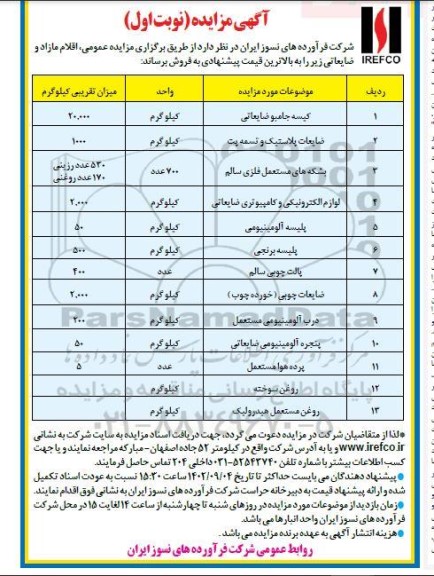 آگهی مزایده (نوبت اول)
IREFCO
شرکت فرآورده های نسوز ایران در نظر دارد از طریق برگزاری مزایده عمومی، اقلام مازاد و
ضایعاتی زیر را به بالاترین قیمت پیشنهادی به فروش برساند:
ردیف موضوعات مورد مزایده واحد میزان تقریبی کیلوگرم
۱ کیسه جامبو ضایعاتی کیلوگرم ۲۰،۰۰۰
۲ ضایعات پلاستیک و تسمه پت کیلوگرم ۱۰۰۰
۳ بشکه های مستعمل فلزی سالم ۷۰۰ عدد ۵۳۰ عدد رزینی
۱۷۰ عدد روغنی
۴ لوازم الکترونیکی و کامپیوتری ضایعاتی کیلوگرم ۲،۰۰۰
۵ پلیسه آلومینیومی کیلوگرم ۵۰
۶ پلیسه برنجی کیلوگرم ۵۰۰
۷ پالت چوبی سالم عدد ۴۰۰
۸ ضایعات چوبی (خورده چوب) کیلوگرم ۲،۰۰۰
۹ درب آلومینیومی مستعمل کیلوگرم ۲۰۰
۱۰ پنجره آلومینیومی ضایعاتی کیلوگرم ۵۰
۱۱ پرده هوا مستعمل عدد ۵
۱۲ روغن سوخته کیلوگرم
۱۳ روغن مستعمل هیدرولیک کیلوگرم
ParsNamadData
پایگاه اطلاع رسانی مناقصه و مزایده
۰۲۱-۸۸۳۴۹۶۷۰-۵
*لذا از متقاضیان شرکت در مزایده دعوت می گردد، جهت دریافت اسناد مزایده به سایت شرکت به نشانی
www.irefco.ir و یا به آدرس شرکت واقع در کیلومتر ۵۲ جاده اصفهان - مبارکه مراجعه نمایند و یا جهت
کسب اطلاعات بیشتر با شماره تلفن ۵۲۵۴۳۷۴۰-۰۳۱ داخلی ۲۰۴ تماس حاصل فرمایند.
*پیشنهاد دهندگان می بایست حداکثر تا تاریخ ۱۴۰۲/۰۹/۰۴ ساعت ۱۵:۳۰ نسبت به عودت اسناد تکمیل
شده و ارائه پیشنهاد قیمت به دبیرخانه حراست شرکت فرآورده های نسوز ایران به نشانی فوق اقدام نمایند.
*زمان بازدید از موضوعات مورد مزایده در روزهای شنبه تا چهارشنبه از ساعت ۱۴ لغایت ۱۵ در محل شرکت
فرآورده های نسوز ایران واحد انبارها می باشد.
*هزینه انتشار آگهی به عهده برنده مزایده می باشد.
روابط عمومی شرکت فرآورده های نسوز ایران